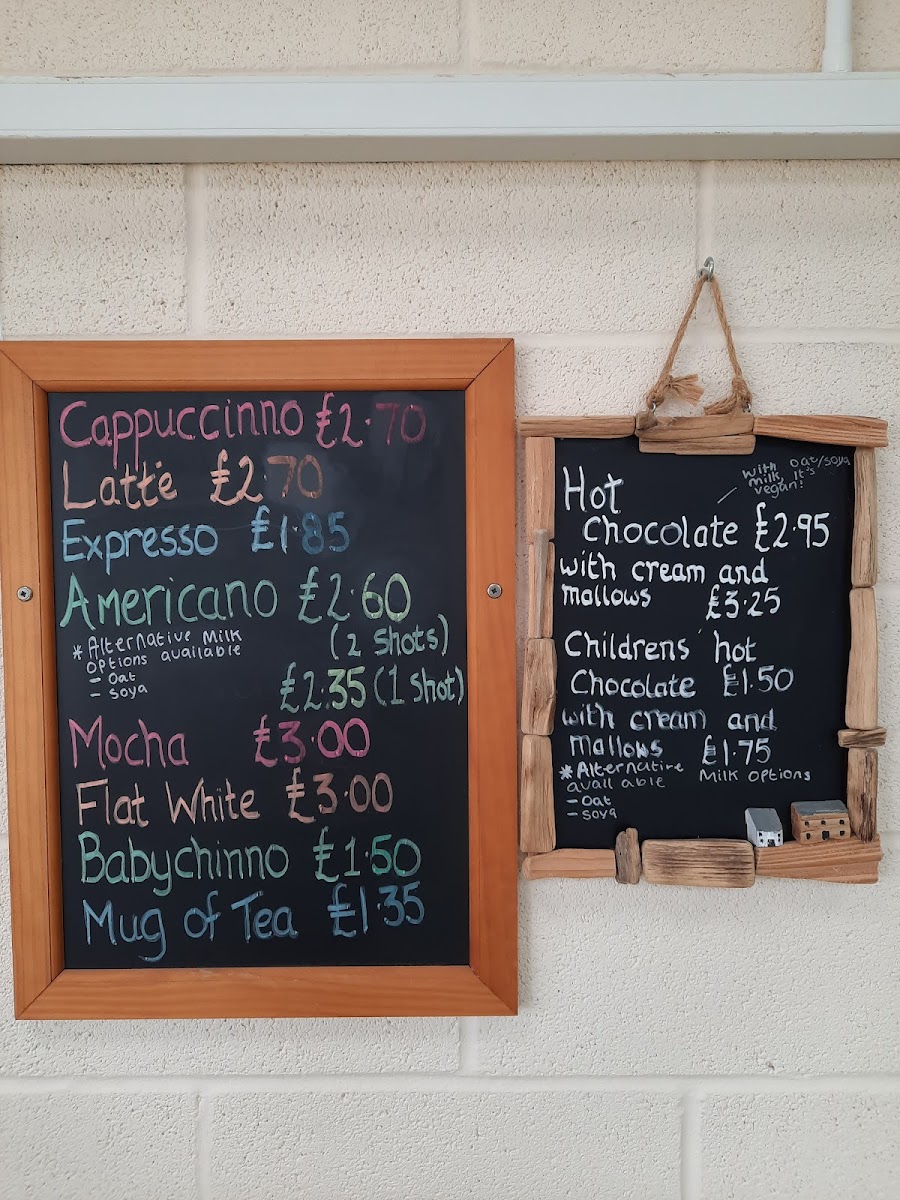 Cappuccinno £2.70
Latté £2.70
Expresso £1.85
Americano £2.60
*Alternative Milk
options available
- Oat
- Soya
(2 shots)
£2.35 (1 Shot)
Mocha £3.00
Flat White £3.00
Babychinno £1.50
Mug of Tea £1.35
with oat/soya
milk, It's
vegan!
Hot
chocolate £2.95
with cream and
mallows £3.25
Childrens' hot
Chocolate £1.50
with cream and
Mallows £1.75
*Alternative Milk options
available
- Oat
- Soya